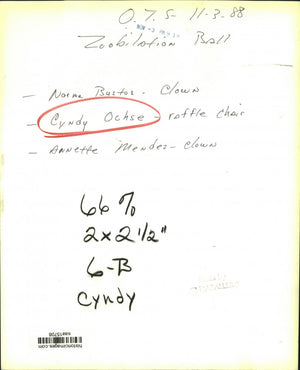 O.T.S- 11-3-88
Zoobilation Ball
- Norma Bustos - Clown
- Cyndy Ochse - raffle chair
- Annette Mendez - Clown
66%
2x2 1/2"
6-B
Cyndy
historicimages.com